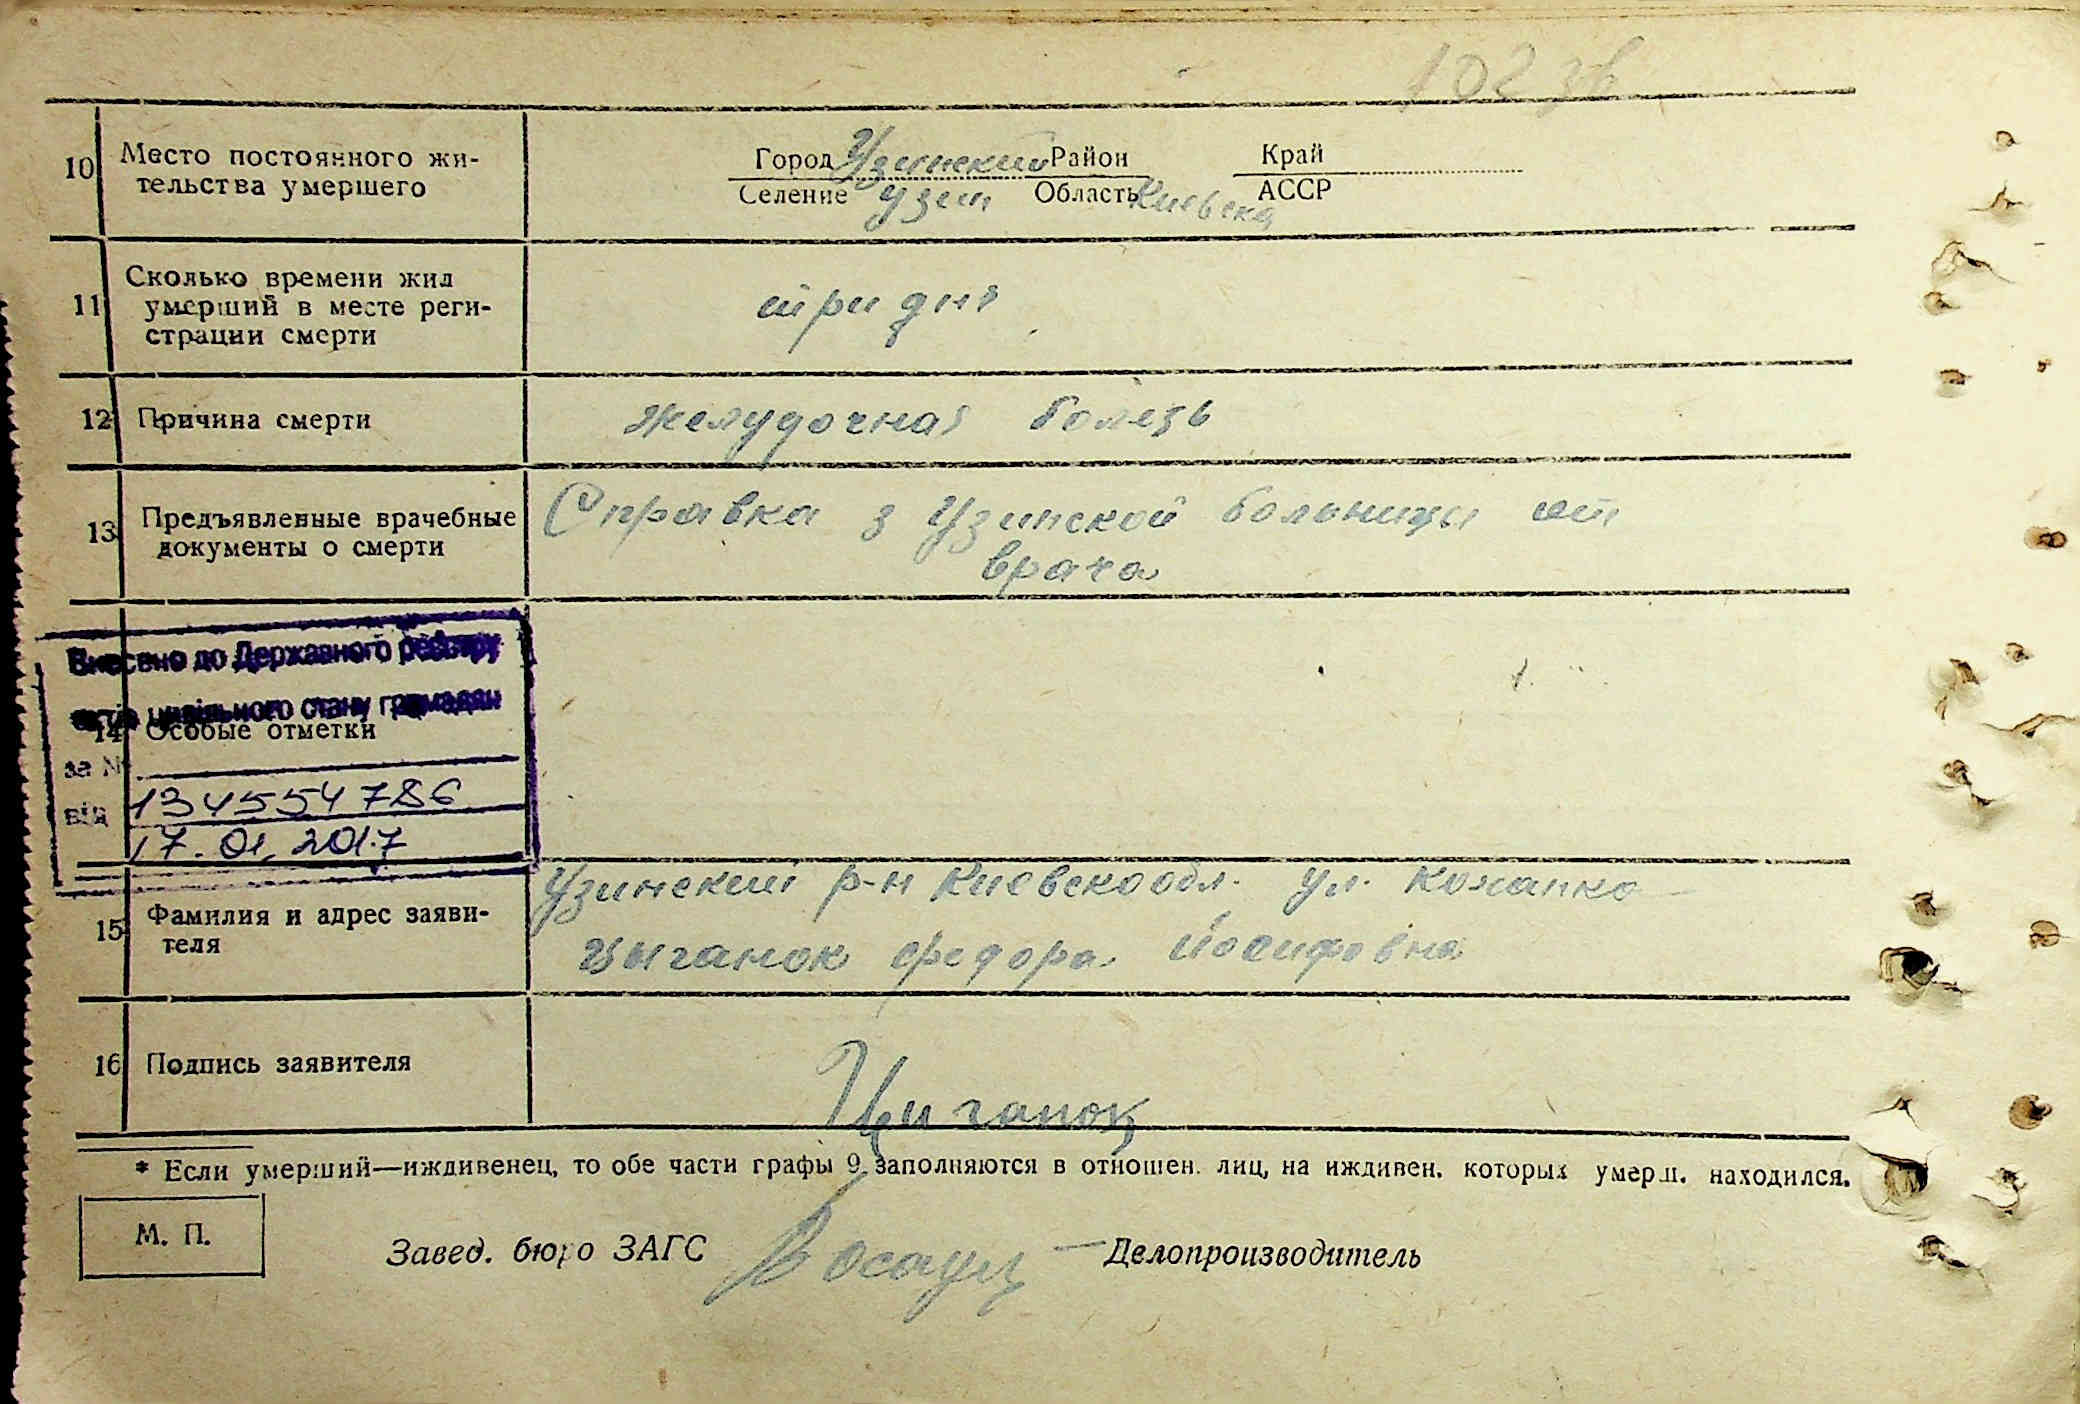 102 зв
10 Место постоянного жи-
тельства умершего
Город Узинский Район Край
Селение Узин Область Киевска АССР
11 Сколько времени жил
умерший в месте реги-
страции смерти
три дня
12 Причина смерти
желудочная болезь
13 Предъявленные врачебные
документы о смерти
Справка з Узинской больницы от
врача
Внесено до Державного реєстру
актів цивільного стану громадян
14 Особые отметки
за №
1345554786
від
17.01.2017
15 Фамилия и адрес заяви-
теля
Узинский р-н Киевско обл. ул.
Цыганок Федора Йосифовна
16 Подпись заявителя
Циганок
* Если умерший—иждивенец, то обе части графы 9 заполняются в отношен. лиц, на иждивен. которых умерш. находился.
М. П.
Завед. бюро ЗАГС Делопроизводитель